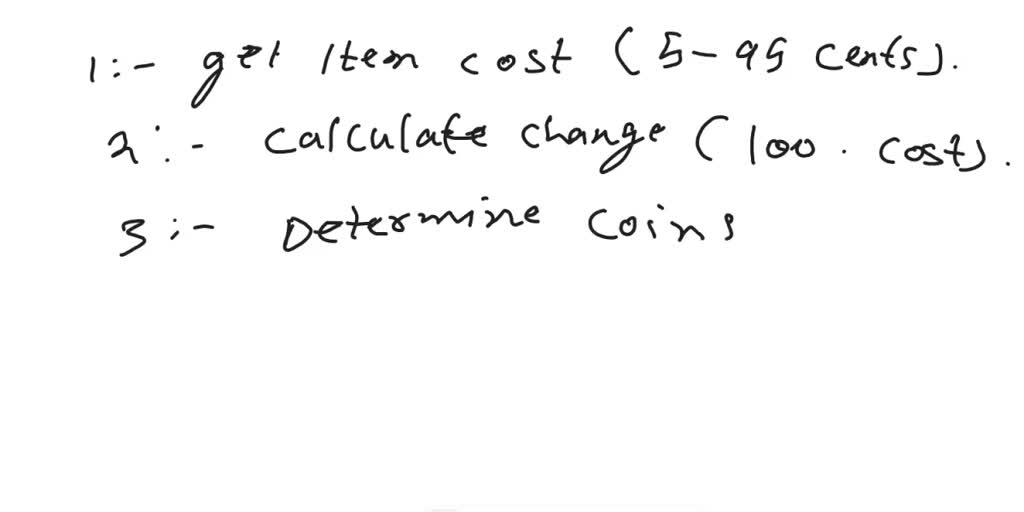 1:- get Item cost (5-95 cents).
2:- calculate change (100. cost).
3:- Determine coins